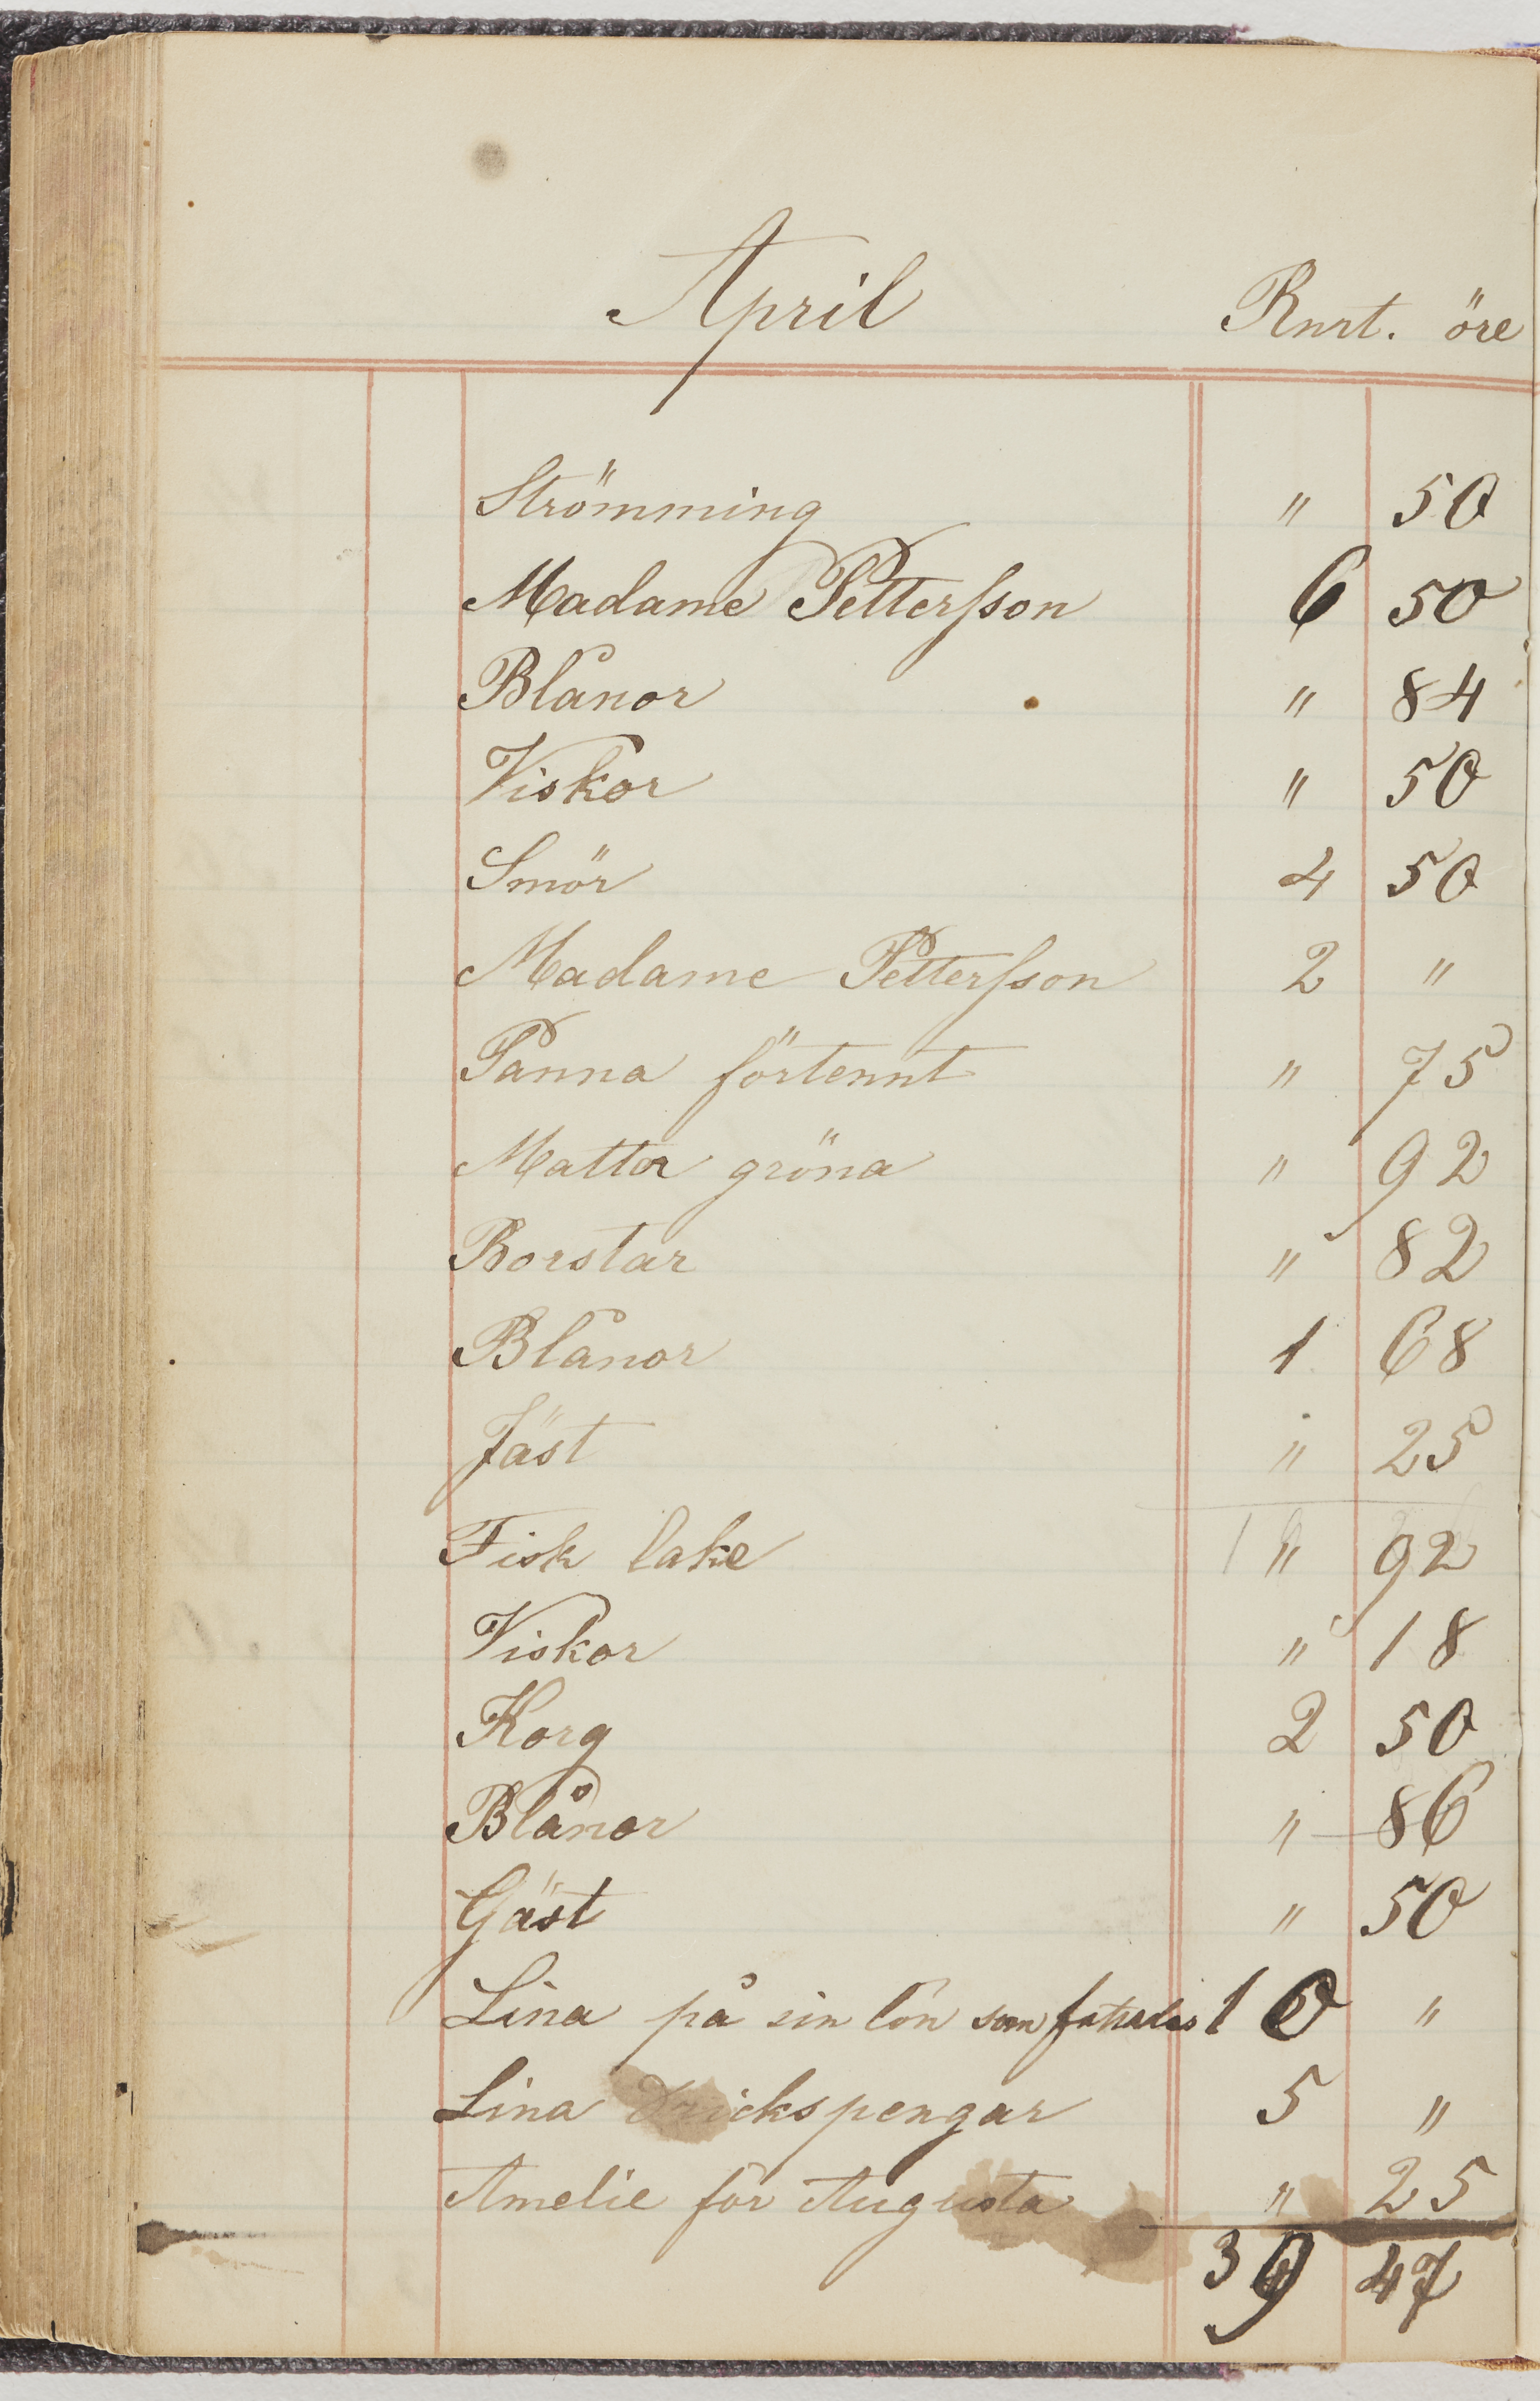 April Rmt. öre
Strömming " 50
Madame Pettersson 6 50
Blånor " 84
Viskor " 50
Smör 4 50
Madame Pettersson 2 "
Panna förtennt " 75
Mattor gröna " 92
Borstar " 82
Blånor 1 68
Jäst " 25
Fisk lake " 92
Viskor " 18
Korg 2 50
Blånor " 86
Gäst " 50
Lina på sin lön som 10 "
Lina Drickspengar 5 "
Amelie för Augusta " 25
39 47